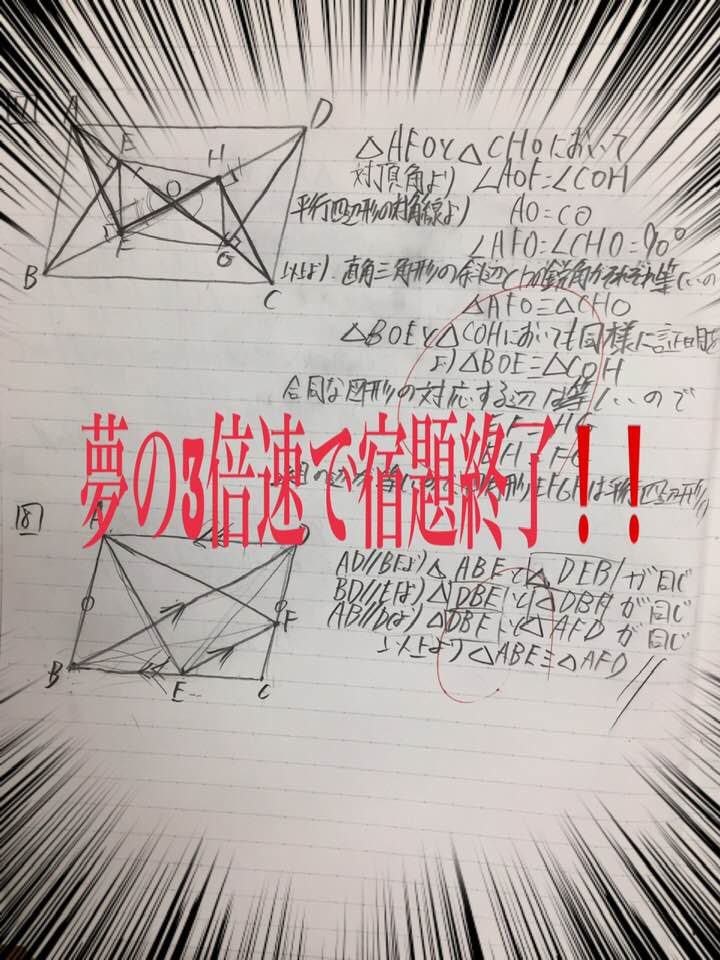 A
D
E
H
O
F
G
B
C
△AFOと△CHOにおいて
対頂角より ∠AOF=∠COH
平行四辺形の対角線より AO=CO
∠AFO=∠CHO=90°
以上より、直角三角形の斜辺と1つの鋭角がそれぞれ等しいの
△AFO≡△CHO
△BOEと△COHにおいても同様に証明
より△BOE≡△COH
合同な図形の対応する辺は等しいので
夢の3倍速で宿題終了!!
18
A
D
F
B
E
C
AD//BEより△ABEと△DEBが同じ
BD//EFより△DBEと△DBFが同じ
AB//Dより△DBFと△AFDが同じ
以上より△ABE≡△AFD//